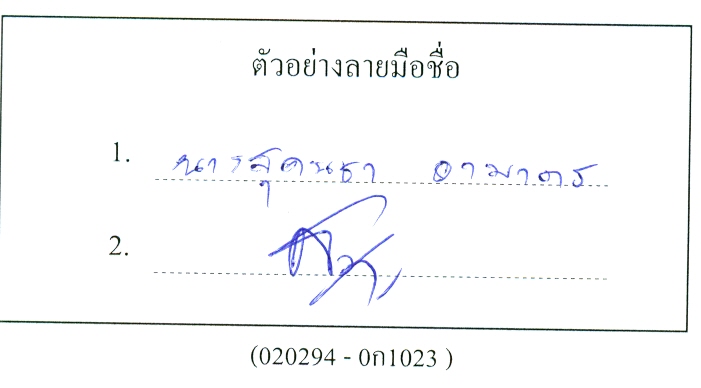 ตัวอย่างลายมือชื่อ
1. นารสุคนธา อามาตร
2.
(020294 - 0ก1023 )